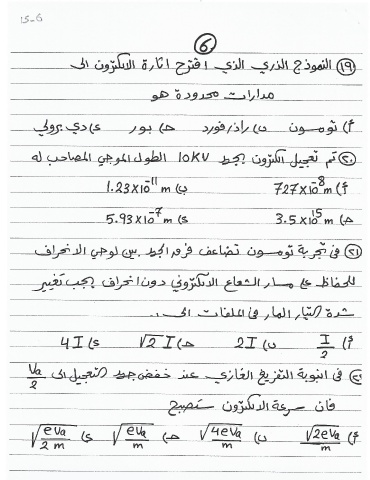 15-6
6
١٩) النموذج الذري الذي اقترح اثارة الالكترون الى
مدارات محدودة هو
أ) تومسون ب) راذرفورد ح) بور د) دي برولي
٢٠) تم تعجيل الكترون بجهد 10KV الطول الموجي المصاحب له
أ) 727x10⁻⁸ m ب) 1.23x10⁻¹¹ m
ح) 3.5x10¹⁵ m د) 5.93x10⁻⁷ m
٢١) في تجربة تومسون تضاعف فرق الجهد بين لوحي الانحراف
للحفاظ على مسار الشعاع الالكتروني دون انحراف يجب تغيير
شدة التيار المار في الملفات الى ..
أ) I/2 ب) 2I ح) √2 I د) 4I
في انبوبة التفريغ الغازي عند خفض جهد التعجيل الى Va/2
فان سرعة الالكترون ستصبح
أ) √(2eVa/m) ب) √(4eVa/m) ح) √(eVa/m) د) √(eVa/2m)